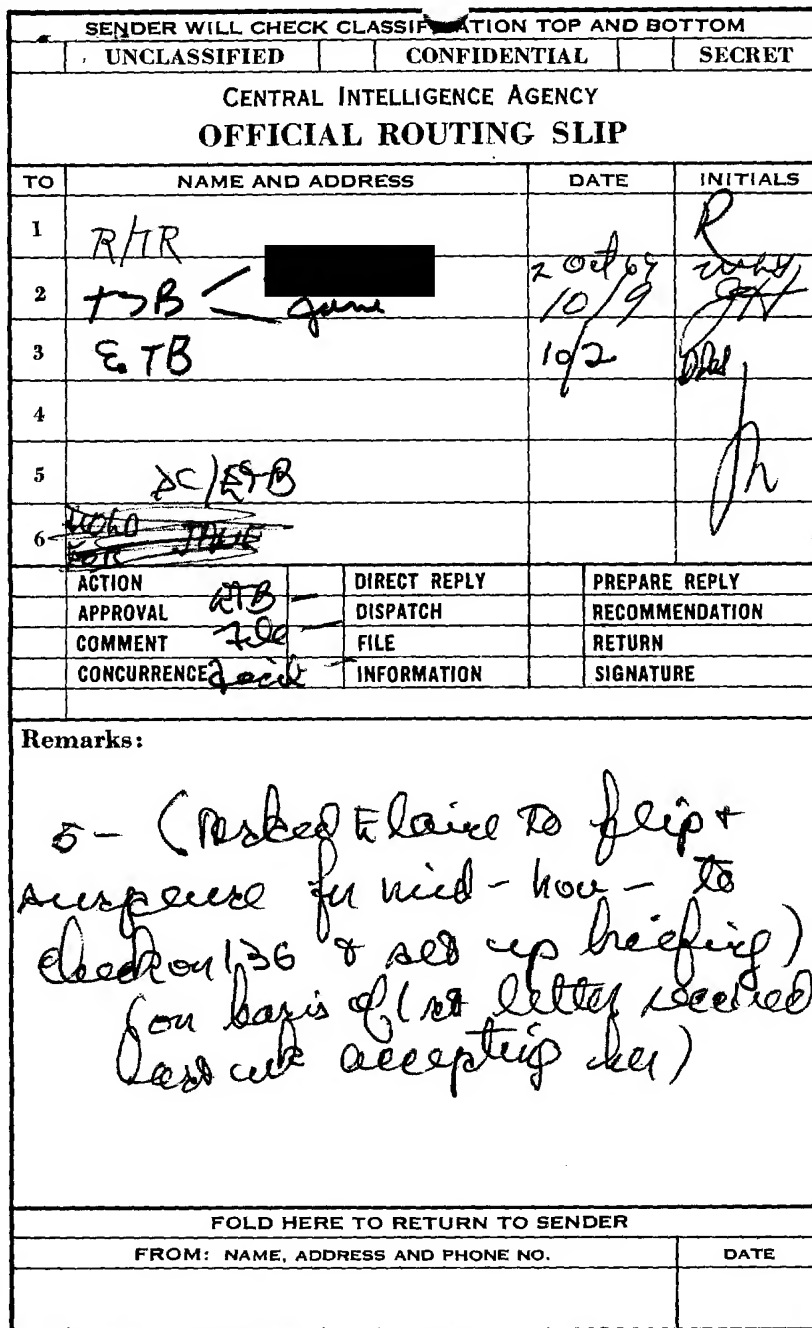 SENDER WILL CHECK CLASSIFICATION TOP AND BOTTOM
UNCLASSIFIED CONFIDENTIAL SECRET
CENTRAL INTELLIGENCE AGENCY
OFFICIAL ROUTING SLIP
TO NAME AND ADDRESS DATE INITIALS
1 R/TR R
2 2 Oct
10/9 JH
3 10/2
4
5
6 HOLD
FOR JANE
ACTION DIRECT REPLY PREPARE REPLY
APPROVAL DISPATCH RECOMMENDATION
COMMENT file FILE RETURN
CONCURRENCE INFORMATION SIGNATURE
Remarks:
5- (Asked Elaine to flip +
suspense for mid-nov- to
check on 136 & set up briefing)
(on basis of 1st letter received
last wk accepting her)
FOLD HERE TO RETURN TO SENDER
FROM: NAME, ADDRESS AND PHONE NO. DATE